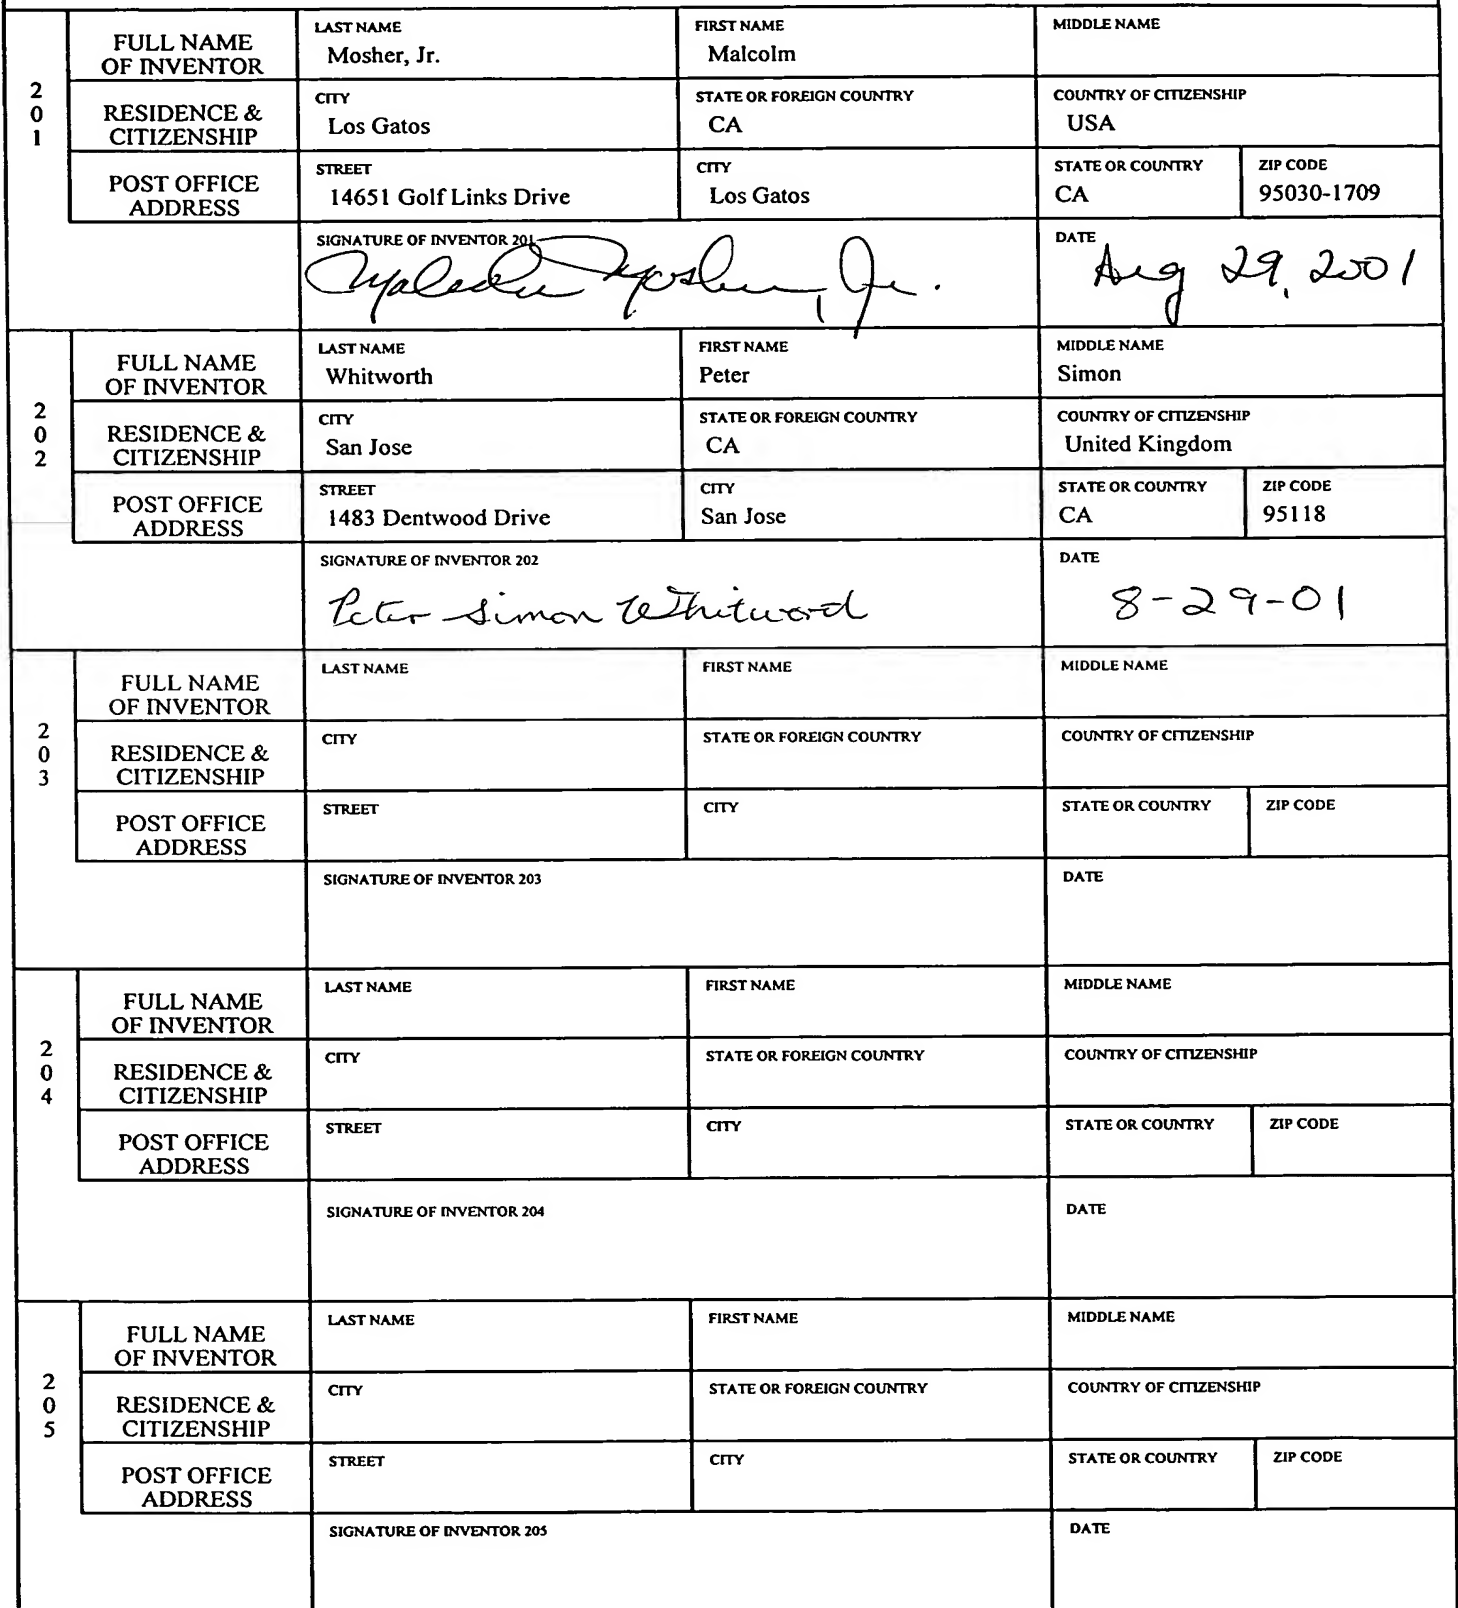 201
FULL NAME OF INVENTOR
LAST NAME
Mosher, Jr.
FIRST NAME
Malcolm
MIDDLE NAME
RESIDENCE & CITIZENSHIP
CITY
Los Gatos
STATE OR FOREIGN COUNTRY
CA
COUNTRY OF CITIZENSHIP
USA
POST OFFICE ADDRESS
STREET
14651 Golf Links Drive
CITY
Los Gatos
STATE OR COUNTRY
CA
ZIP CODE
95030-1709
SIGNATURE OF INVENTOR 201
Malcolm Mosher, Jr.
DATE
Aug 29, 2001
202
FULL NAME OF INVENTOR
LAST NAME
Whitworth
FIRST NAME
Peter
MIDDLE NAME
Simon
RESIDENCE & CITIZENSHIP
CITY
San Jose
STATE OR FOREIGN COUNTRY
CA
COUNTRY OF CITIZENSHIP
United Kingdom
POST OFFICE ADDRESS
STREET
1483 Dentwood Drive
CITY
San Jose
STATE OR COUNTRY
CA
ZIP CODE
95118
SIGNATURE OF INVENTOR 202
Peter Simon Whitword
DATE
8-29-01
203
FULL NAME OF INVENTOR
LAST NAME
FIRST NAME
MIDDLE NAME
RESIDENCE & CITIZENSHIP
CITY
STATE OR FOREIGN COUNTRY
COUNTRY OF CITIZENSHIP
POST OFFICE ADDRESS
STREET
CITY
STATE OR COUNTRY
ZIP CODE
SIGNATURE OF INVENTOR 203
DATE
204
FULL NAME OF INVENTOR
LAST NAME
FIRST NAME
MIDDLE NAME
RESIDENCE & CITIZENSHIP
CITY
STATE OR FOREIGN COUNTRY
COUNTRY OF CITIZENSHIP
POST OFFICE ADDRESS
STREET
CITY
STATE OR COUNTRY
ZIP CODE
SIGNATURE OF INVENTOR 204
DATE
205
FULL NAME OF INVENTOR
LAST NAME
FIRST NAME
MIDDLE NAME
RESIDENCE & CITIZENSHIP
CITY
STATE OR FOREIGN COUNTRY
COUNTRY OF CITIZENSHIP
POST OFFICE ADDRESS
STREET
CITY
STATE OR COUNTRY
ZIP CODE
SIGNATURE OF INVENTOR 205
DATE